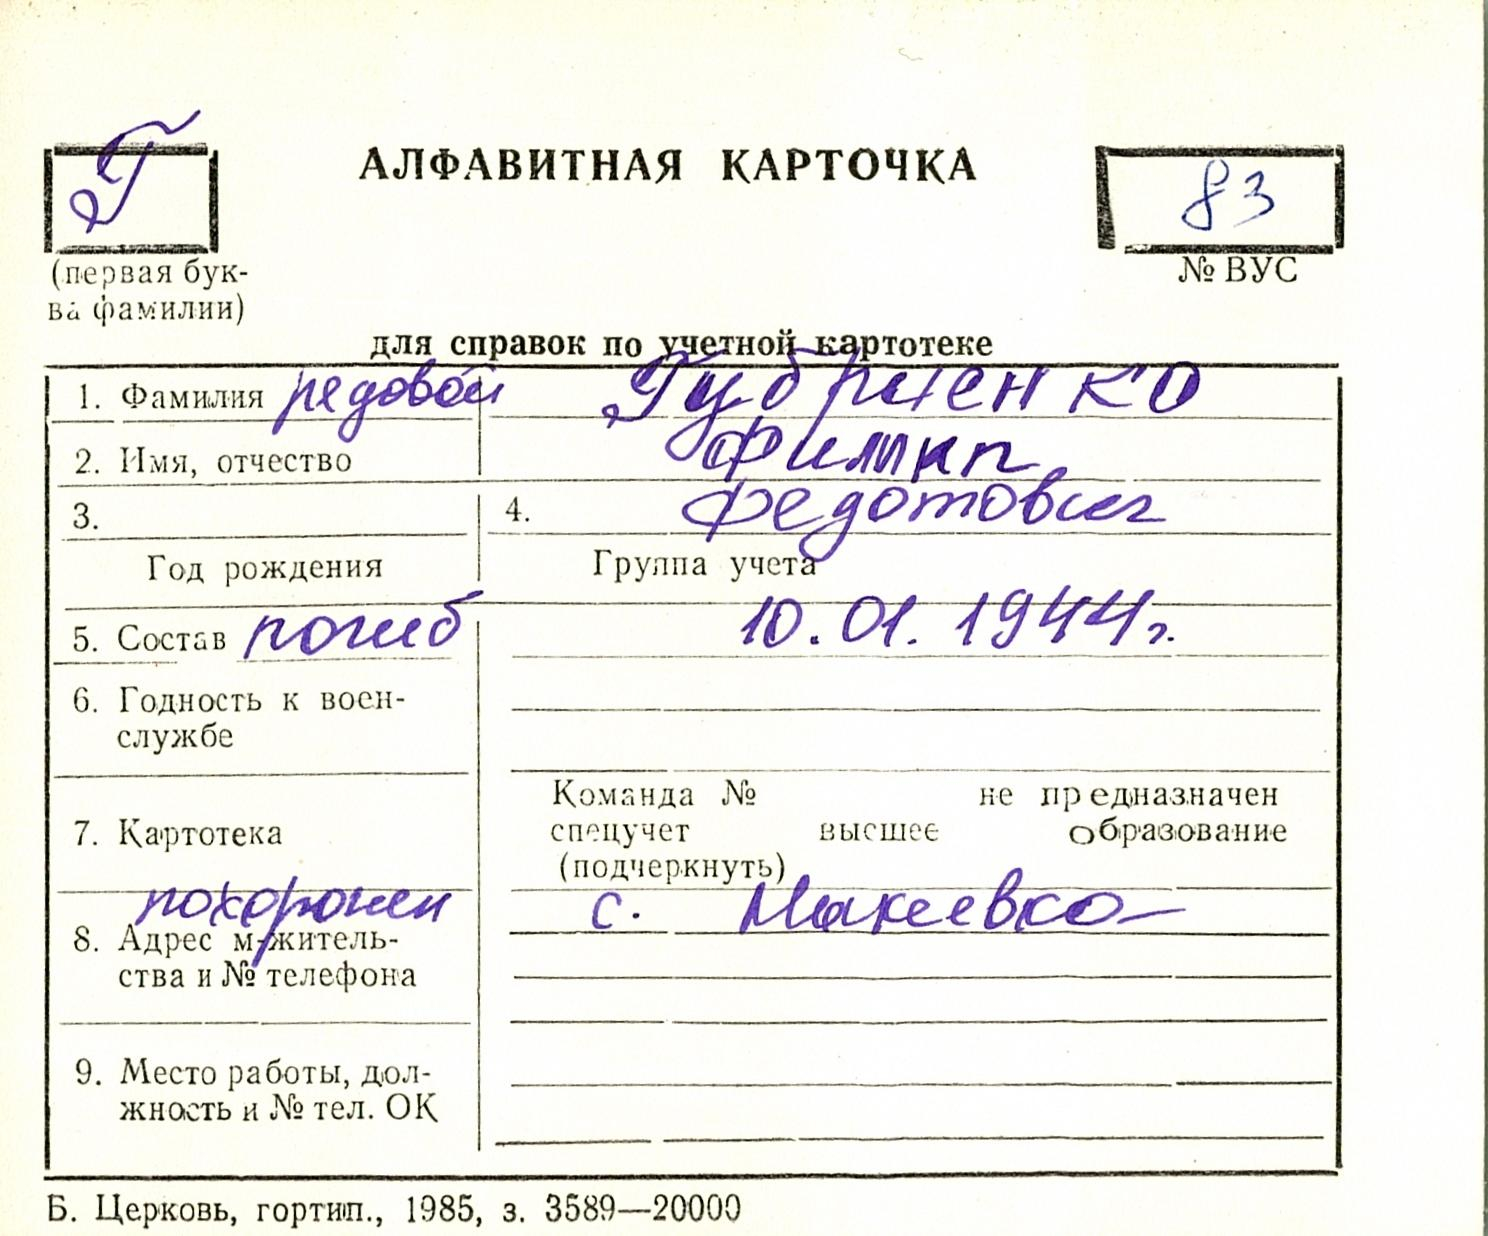 Г
АЛФАВИТНАЯ КАРТОЧКА
83
(первая бук-
ва фамилии)
№ ВУС
для справок по учетной картотеке
1. Фамилия редовой Губриенко
2. Имя, отчество Филипп
3. 4. Федотович
Год рождения Группа учета
5. Состав погиб 10.01.1944г.
6. Годность к воен-
службе
Команда № не предназначен
7. Картотека спецучет высшее образование
(подчеркнуть)
похоронен с. Макеевка
8. Адрес м-житель-
ства и № телефона
9. Место работы, дол-
жность и № тел. ОК
Б. Церковь, гортип., 1985, з. 3589—20000